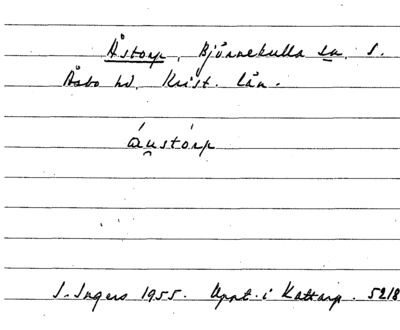 Åstorp, Björnekulla sn. S.
Åsbo hd. Krist. län.
áu̯stórp
I. Ingers 1955. Uppt. i Kattarp. 5218